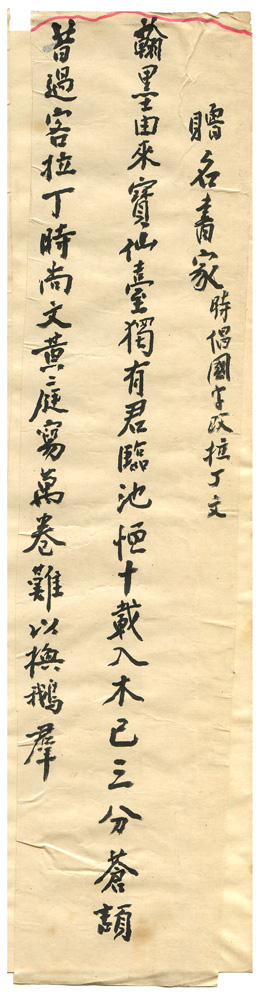 贈名書家 時倡國字改拉丁文
翰墨由來寶仙臺獨有君臨池恆十載入木已三分蒼頡
昔過客拉丁時尚文黃庭寫萬卷難以換鵝羣